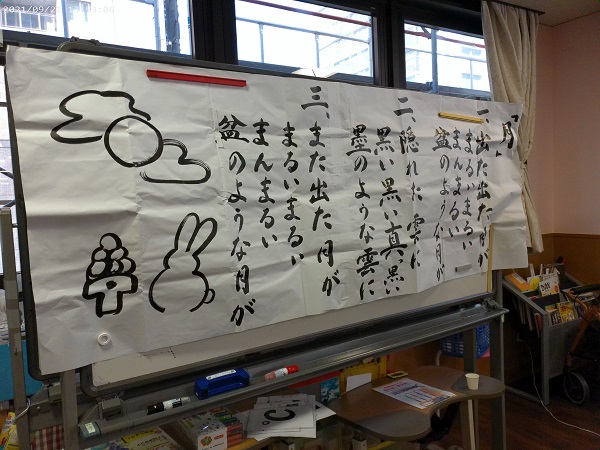 「月」
一、出た出た月が
まるいまるい
まんまるい
盆のような月が
二、隠れた雲に
黒い黒い真黒い
墨のような雲に
三、また出た月が
まるいまるい
まんまるい
盆のような月が
℃